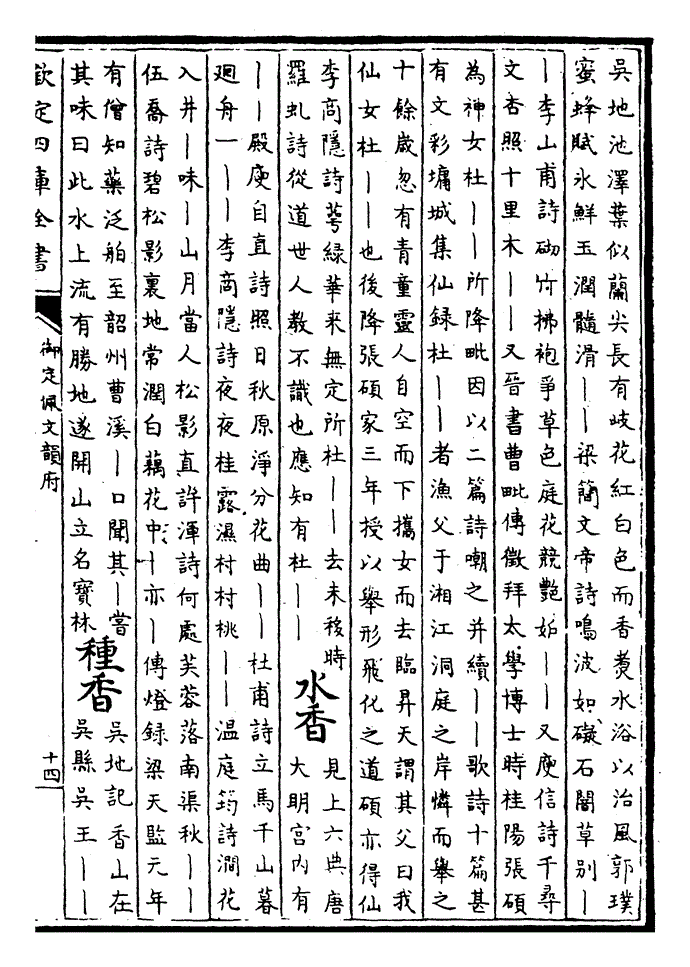 吳地池澤葉似蘭尖長有歧花紅白色而香煑水浴以治風郭璞
蜜蜂賦氷鮮玉潤髓滑丨丨梁簡文帝詩鳴波如礙石闇草别丨
丨李山甫詩砌竹拂袍爭草色庭花競艶妬丨丨又庾信詩千尋
文杏照十里木丨丨又晉書曹毗傳徵拜太學博士時桂陽張碩
為神女杜丨丨所降毗因以二篇詩嘲之并續丨丨歌詩十篇甚
有文彩墉城集仙録杜丨丨者漁父于湘江洞庭之岸憐而舉之
十餘歲忽有青童靈人自空而下攜女而去臨昇天謂其父曰我
仙女杜丨丨也後降張碩家三年授以舉形飛化之道碩亦得仙
李商隱詩萼緑華来無定所杜丨丨去未移時
羅虬詩從道世人教不識也應知有杜丨丨
水香
見上六典唐
大明宫内有
丨丨殿庾自直詩照日秋原淨分花曲丨丨杜甫詩立馬千山暮
廻舟一丨丨李商隱詩夜夜桂露濕村村桃丨丨温庭筠詩澗花
入井丨味丨山月當人松影直許渾詩何處芙蓉落南渠秋丨丨
伍喬詩碧松影裏地常潤白藕花中丨亦丨傳燈録梁天監元年
有僧知藥泛舶至韶州曹溪丨口聞其丨嘗
其味曰此水上流有勝地遂開山立名寶林
種香
吳地記香山在
吳縣吳王丨丨
欽定四庫全書
御定佩文韻府
十四